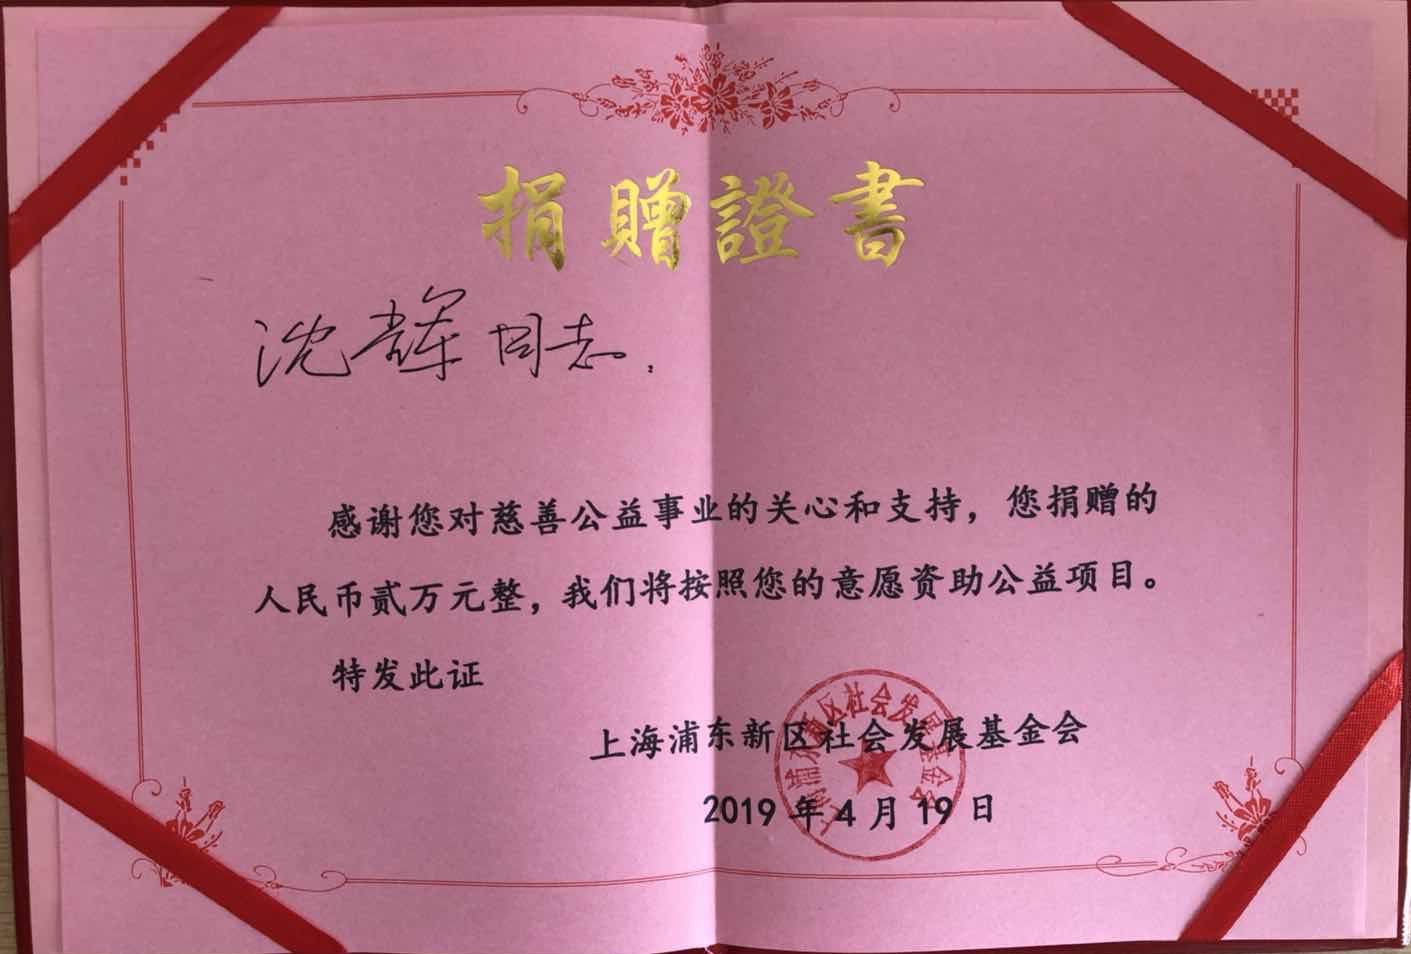 捐贈證書
沈辉同志.
感谢您对慈善公益事业的关心和支持，您捐赠的
人民币贰万元整，我们将按照您的意愿资助公益项目。
特发此证
上海浦东新区社会发展基金会
2019年4月19日
上海浦东新区社会发展基金会